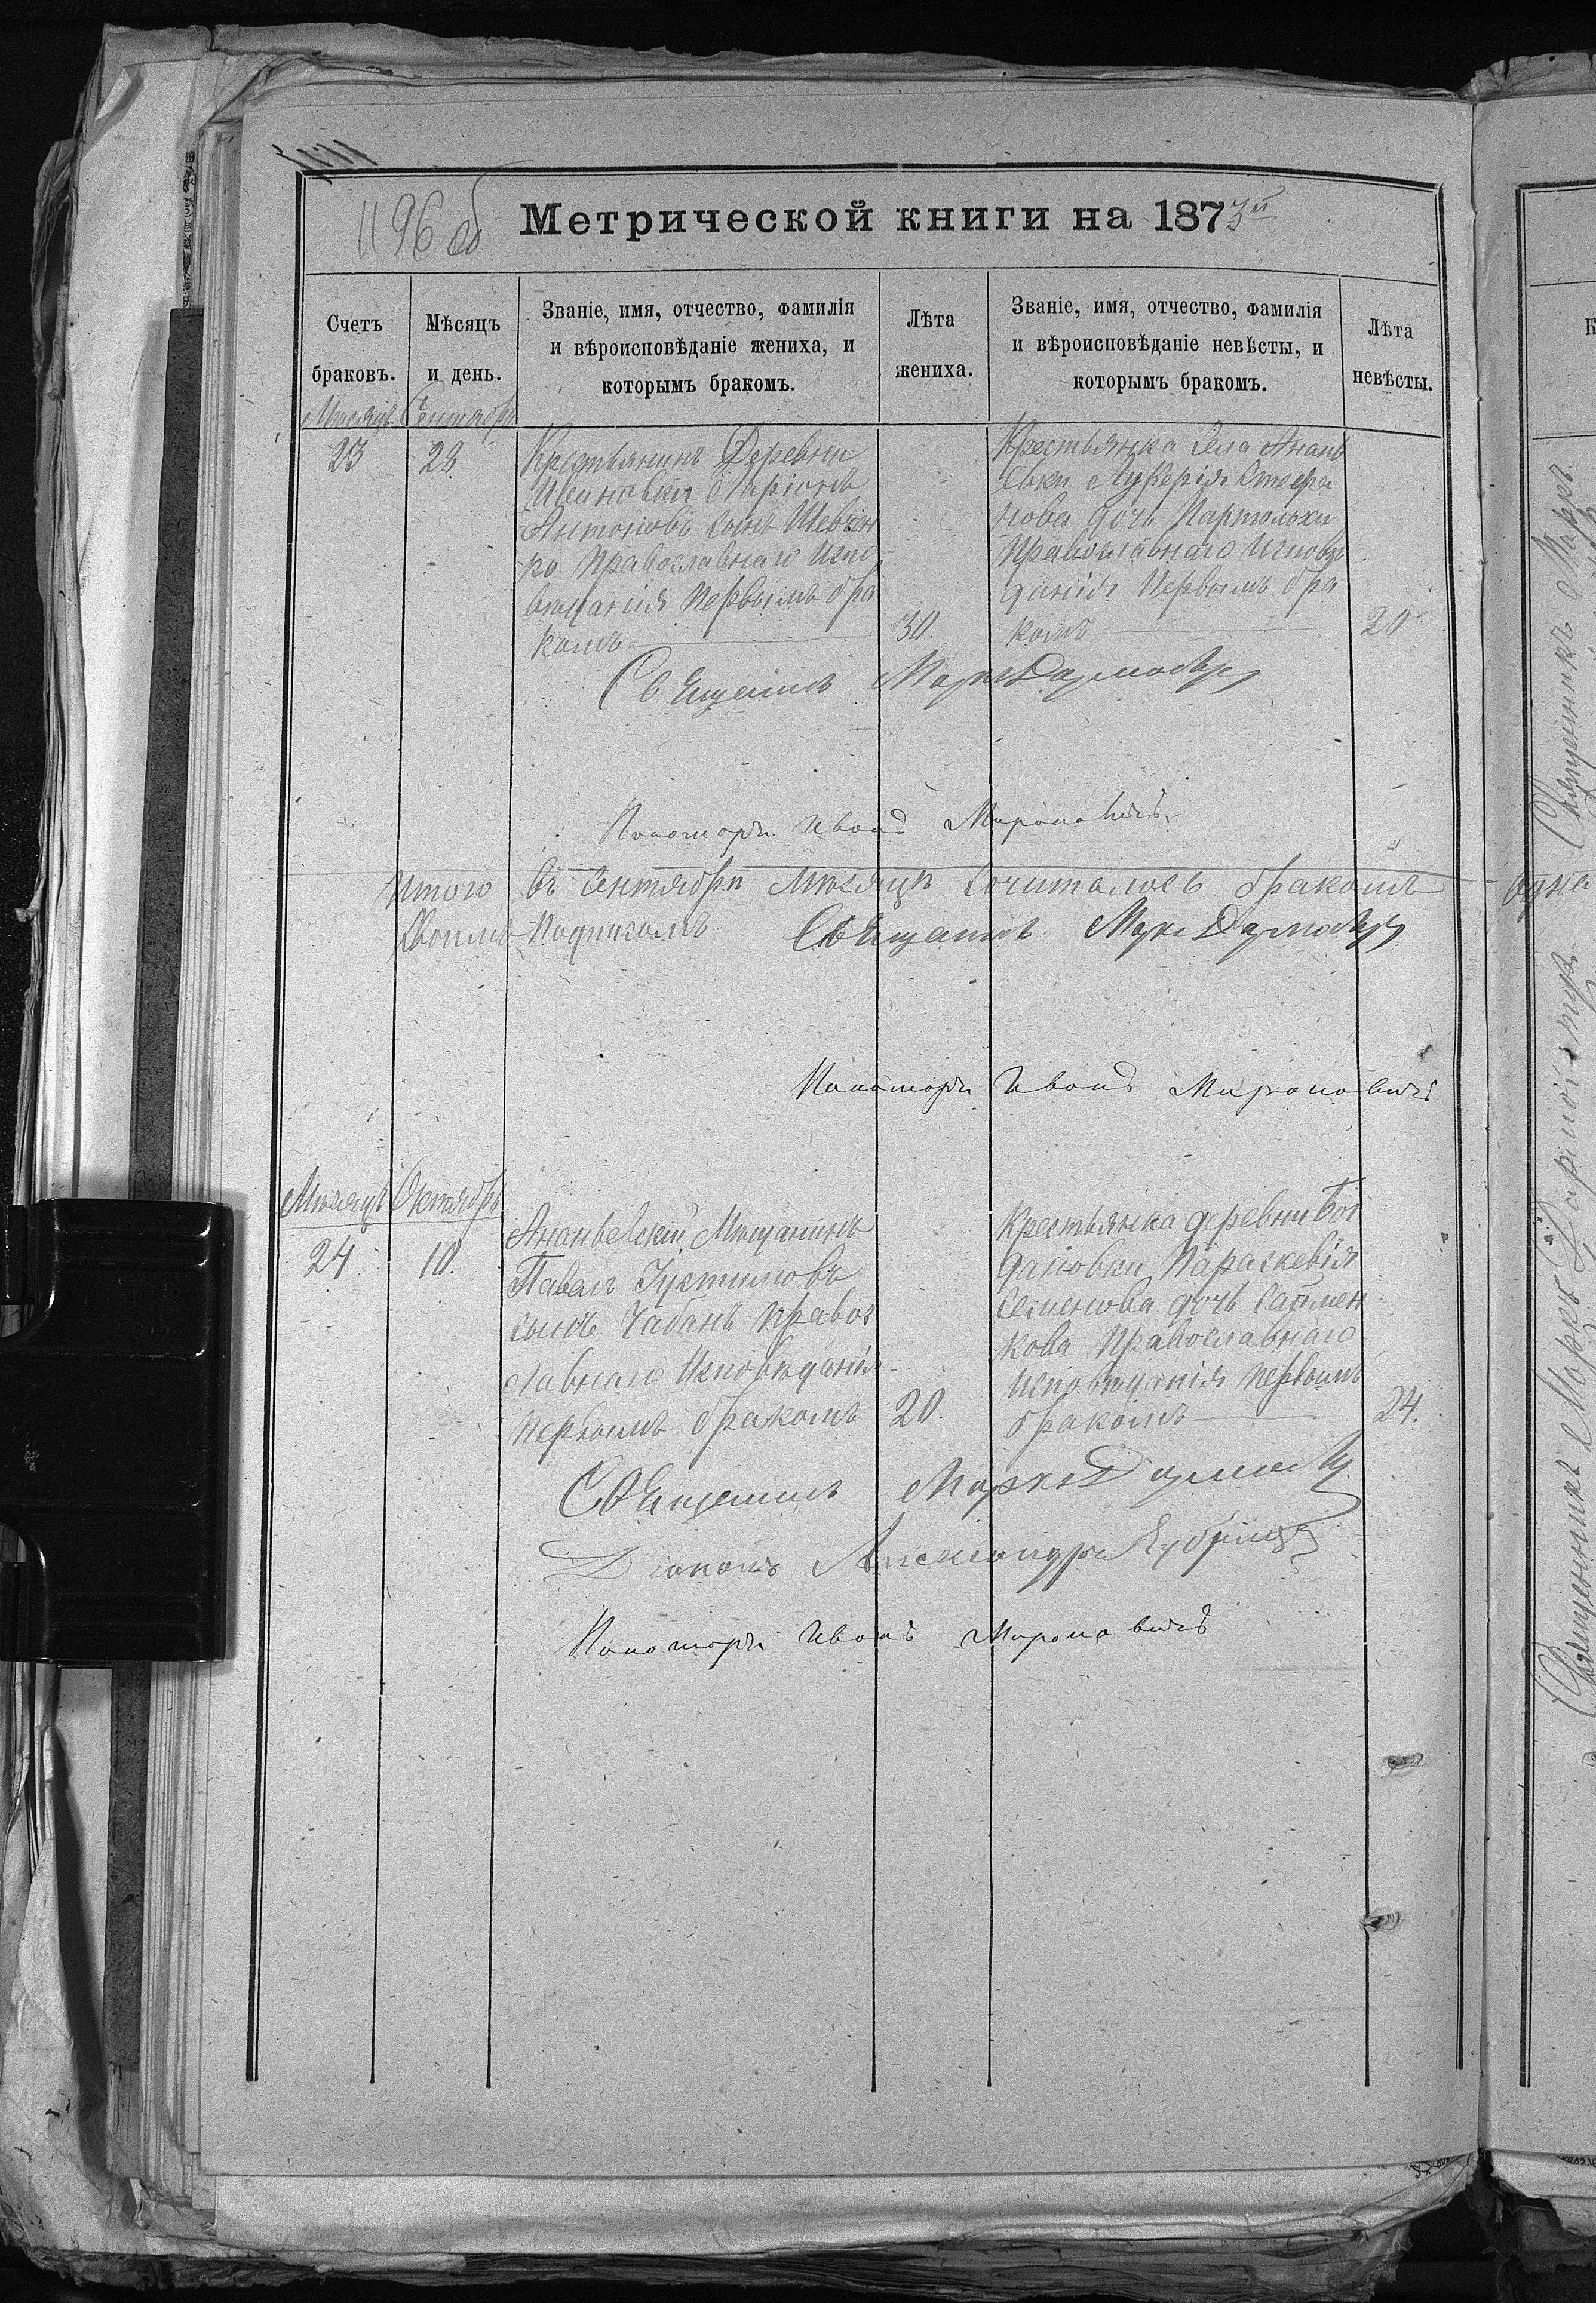 1196 об
Метрической книги на 1873й
Счетъ браковъ.
Мѣсяцъ и день.
Званіе, имя, отчество, фамилія и вѣроисповѣданіе жениха, и которымъ бракомъ.
Лѣта жениха.
Званіе, имя, отчество, фамилія и вѣроисповѣданіе невѣсты, и которымъ бракомъ.
Лѣта невѣсты.
Мѣсяцъ Сентябрь
23
28
Крестьянинъ Деревни
Иларіонъ
Антоновъ сынъ Шевчен
ко Православнаго Испо
вѣданія Первымъ бра
комъ
30.
Крестьянка Села Анань
евки Лукерія Стефа
нова дочь
Православнаго Исповѣ
данія Первымъ бра
комъ
20
Священникъ Маркъ
Пономарь Иванъ Мироновичъ
Итого въ Сентябрѣ Мѣсяцѣ Сочиталось бракомъ
Священникъ Маркъ
Пономарь Иванъ Мироновичъ
Мѣсяцъ Октябрь
24
10.
Ананьевскій Мѣщанинъ
Павелъ Іустиновъ
сынъ Чабанъ Правос
лавнаго Исповѣданія
Первымъ бракомъ
20.
Крестьянка деревни Бог
дановки Параскевія
Семенова дочь
кова Православнаго
Исповѣданія Первымъ
бракомъ
24.
Священникъ Маркъ
Діаконъ Александръ
Пономарь Иванъ Мироновичъ